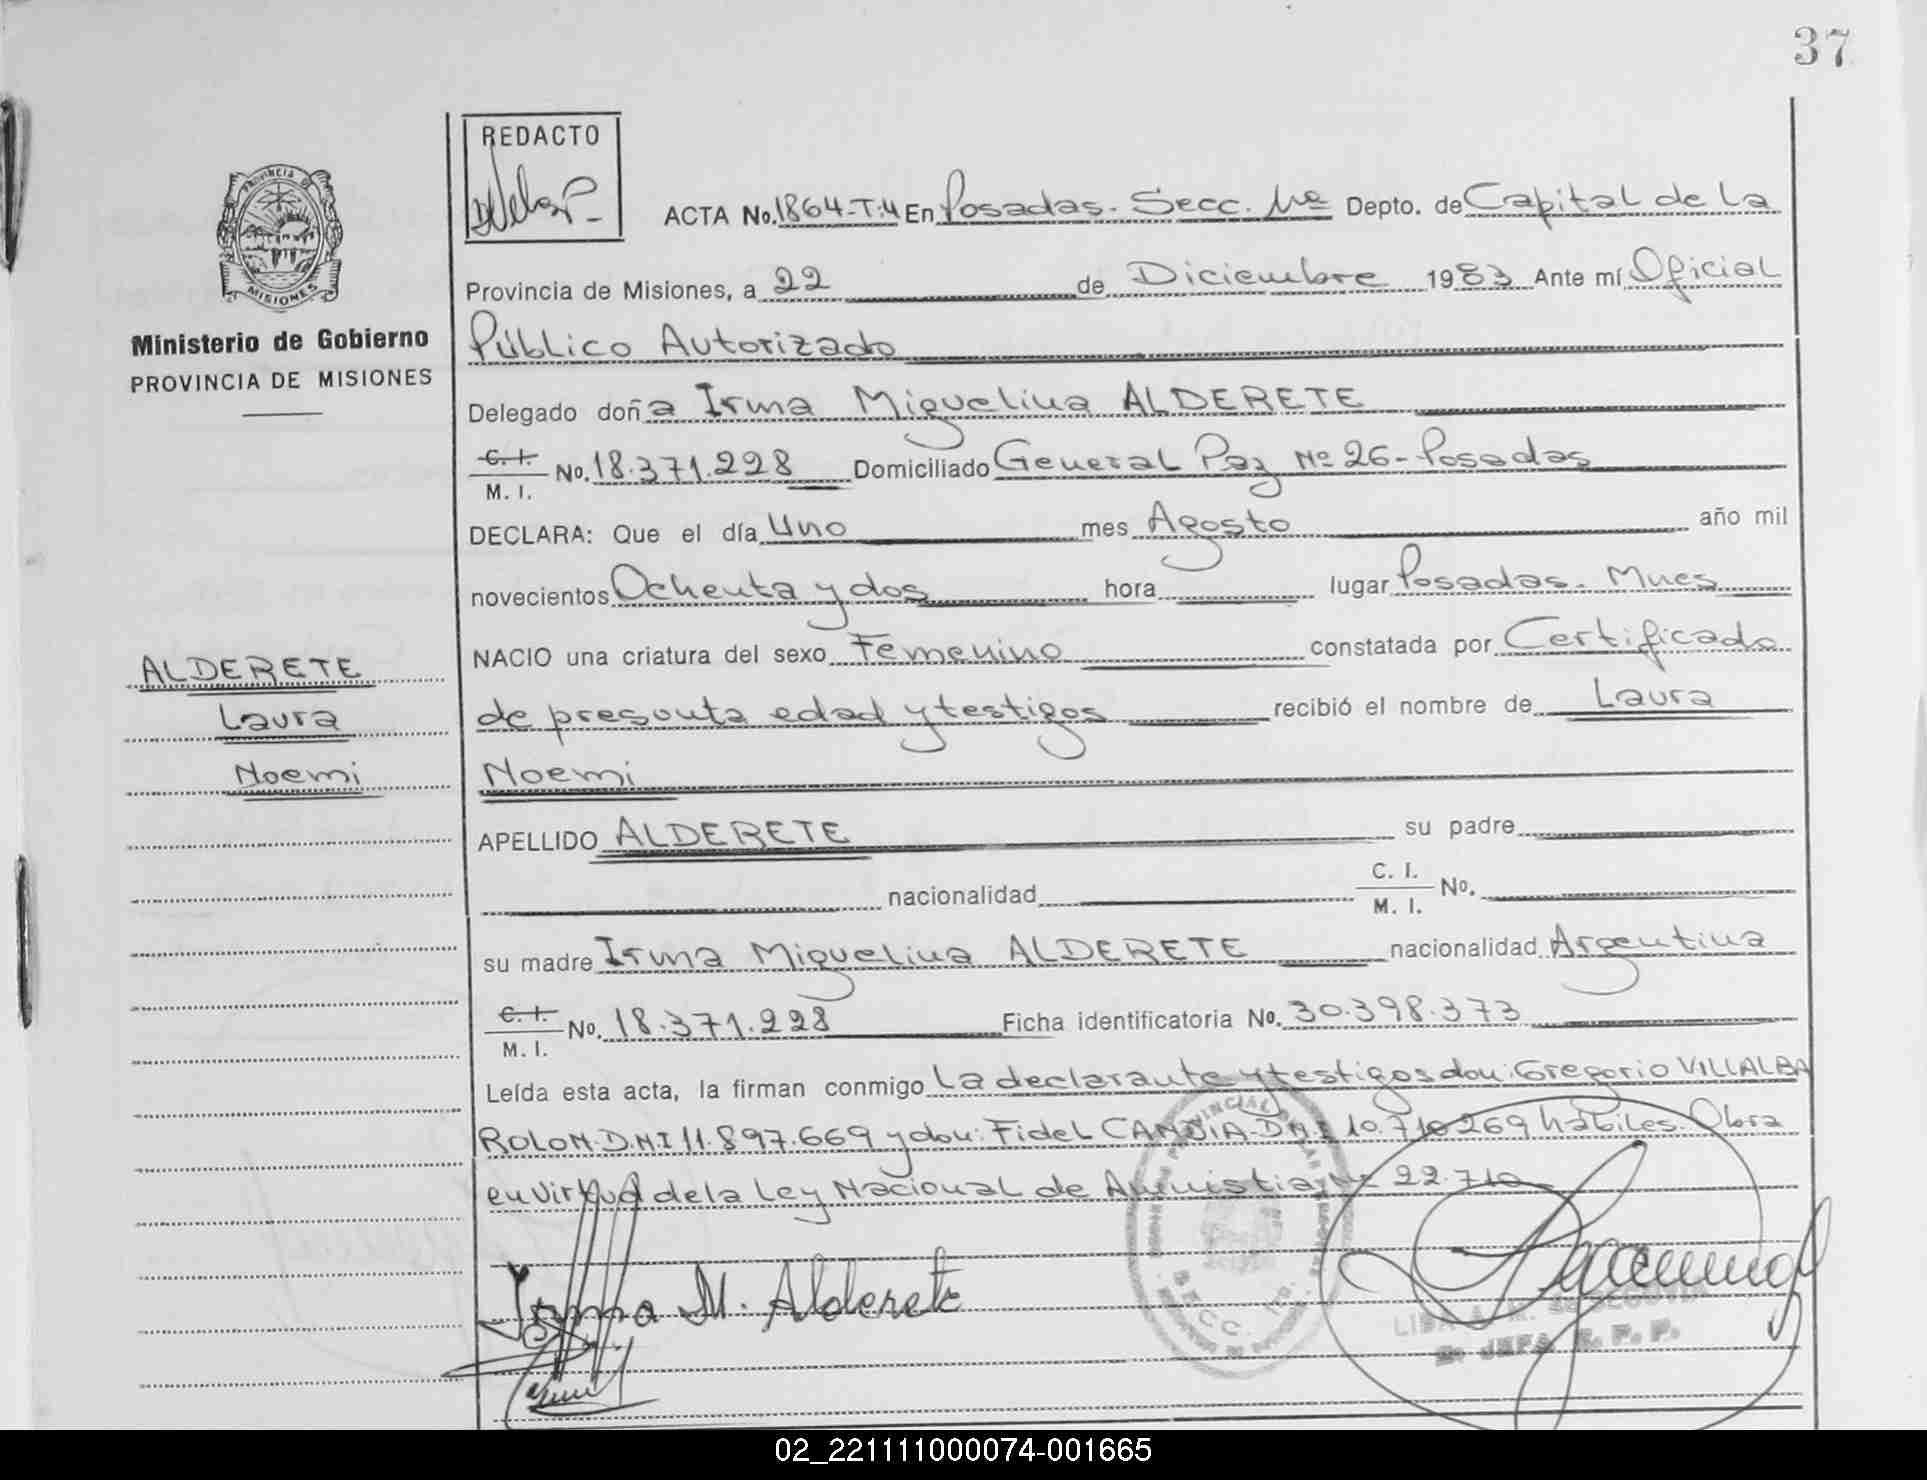 37
REDACTO
ACTA No. 1864-T:4 En Posadas. Secc. 1ra Depto. de Capital de la
Provincia de Misiones, a 22 de Diciembre 1983 Ante mí Oficial
PROVINCIA DE
MISIONES
Ministerio de Gobierno
PROVINCIA DE MISIONES
Público Autorizado
Delegado doña Irma Miguelina ALDERETE
C. I.
M. I. No. 18.371.228 Domiciliado General Paz Nº 26-Posadas
DECLARA: Que el día Uno mes Agosto año mil
novecientos Ochenta y dos hora lugar Posadas. Mnes
NACIO una criatura del sexo Femenino constatada por Certificado
de presunta edad y testigos recibió el nombre de Laura
Noemi
ALDERETE
Laura
Noemi
APELLIDO ALDERETE su padre
nacionalidad C. I.
M. I. No.
su madre Irma Miguelina ALDERETE nacionalidad Argentina
C. I.
M. I. No. 18.371.228 Ficha identificatoria No. 30.398.373
Leída esta acta, la firman conmigo La declarante y testigos don: Gregorio VILLALBA
ROLON. D.N.I 11.897.669 y don: Fidel CANDIA. D.N.I 10.710269 habiles. Obra
en virtud de la Ley Nacional de Amnistia Nº 22.710
Irma M. Alderete
SECC. 1ra.
SEGOVIA
JEFA R. P. P.
02_221111000074-001665